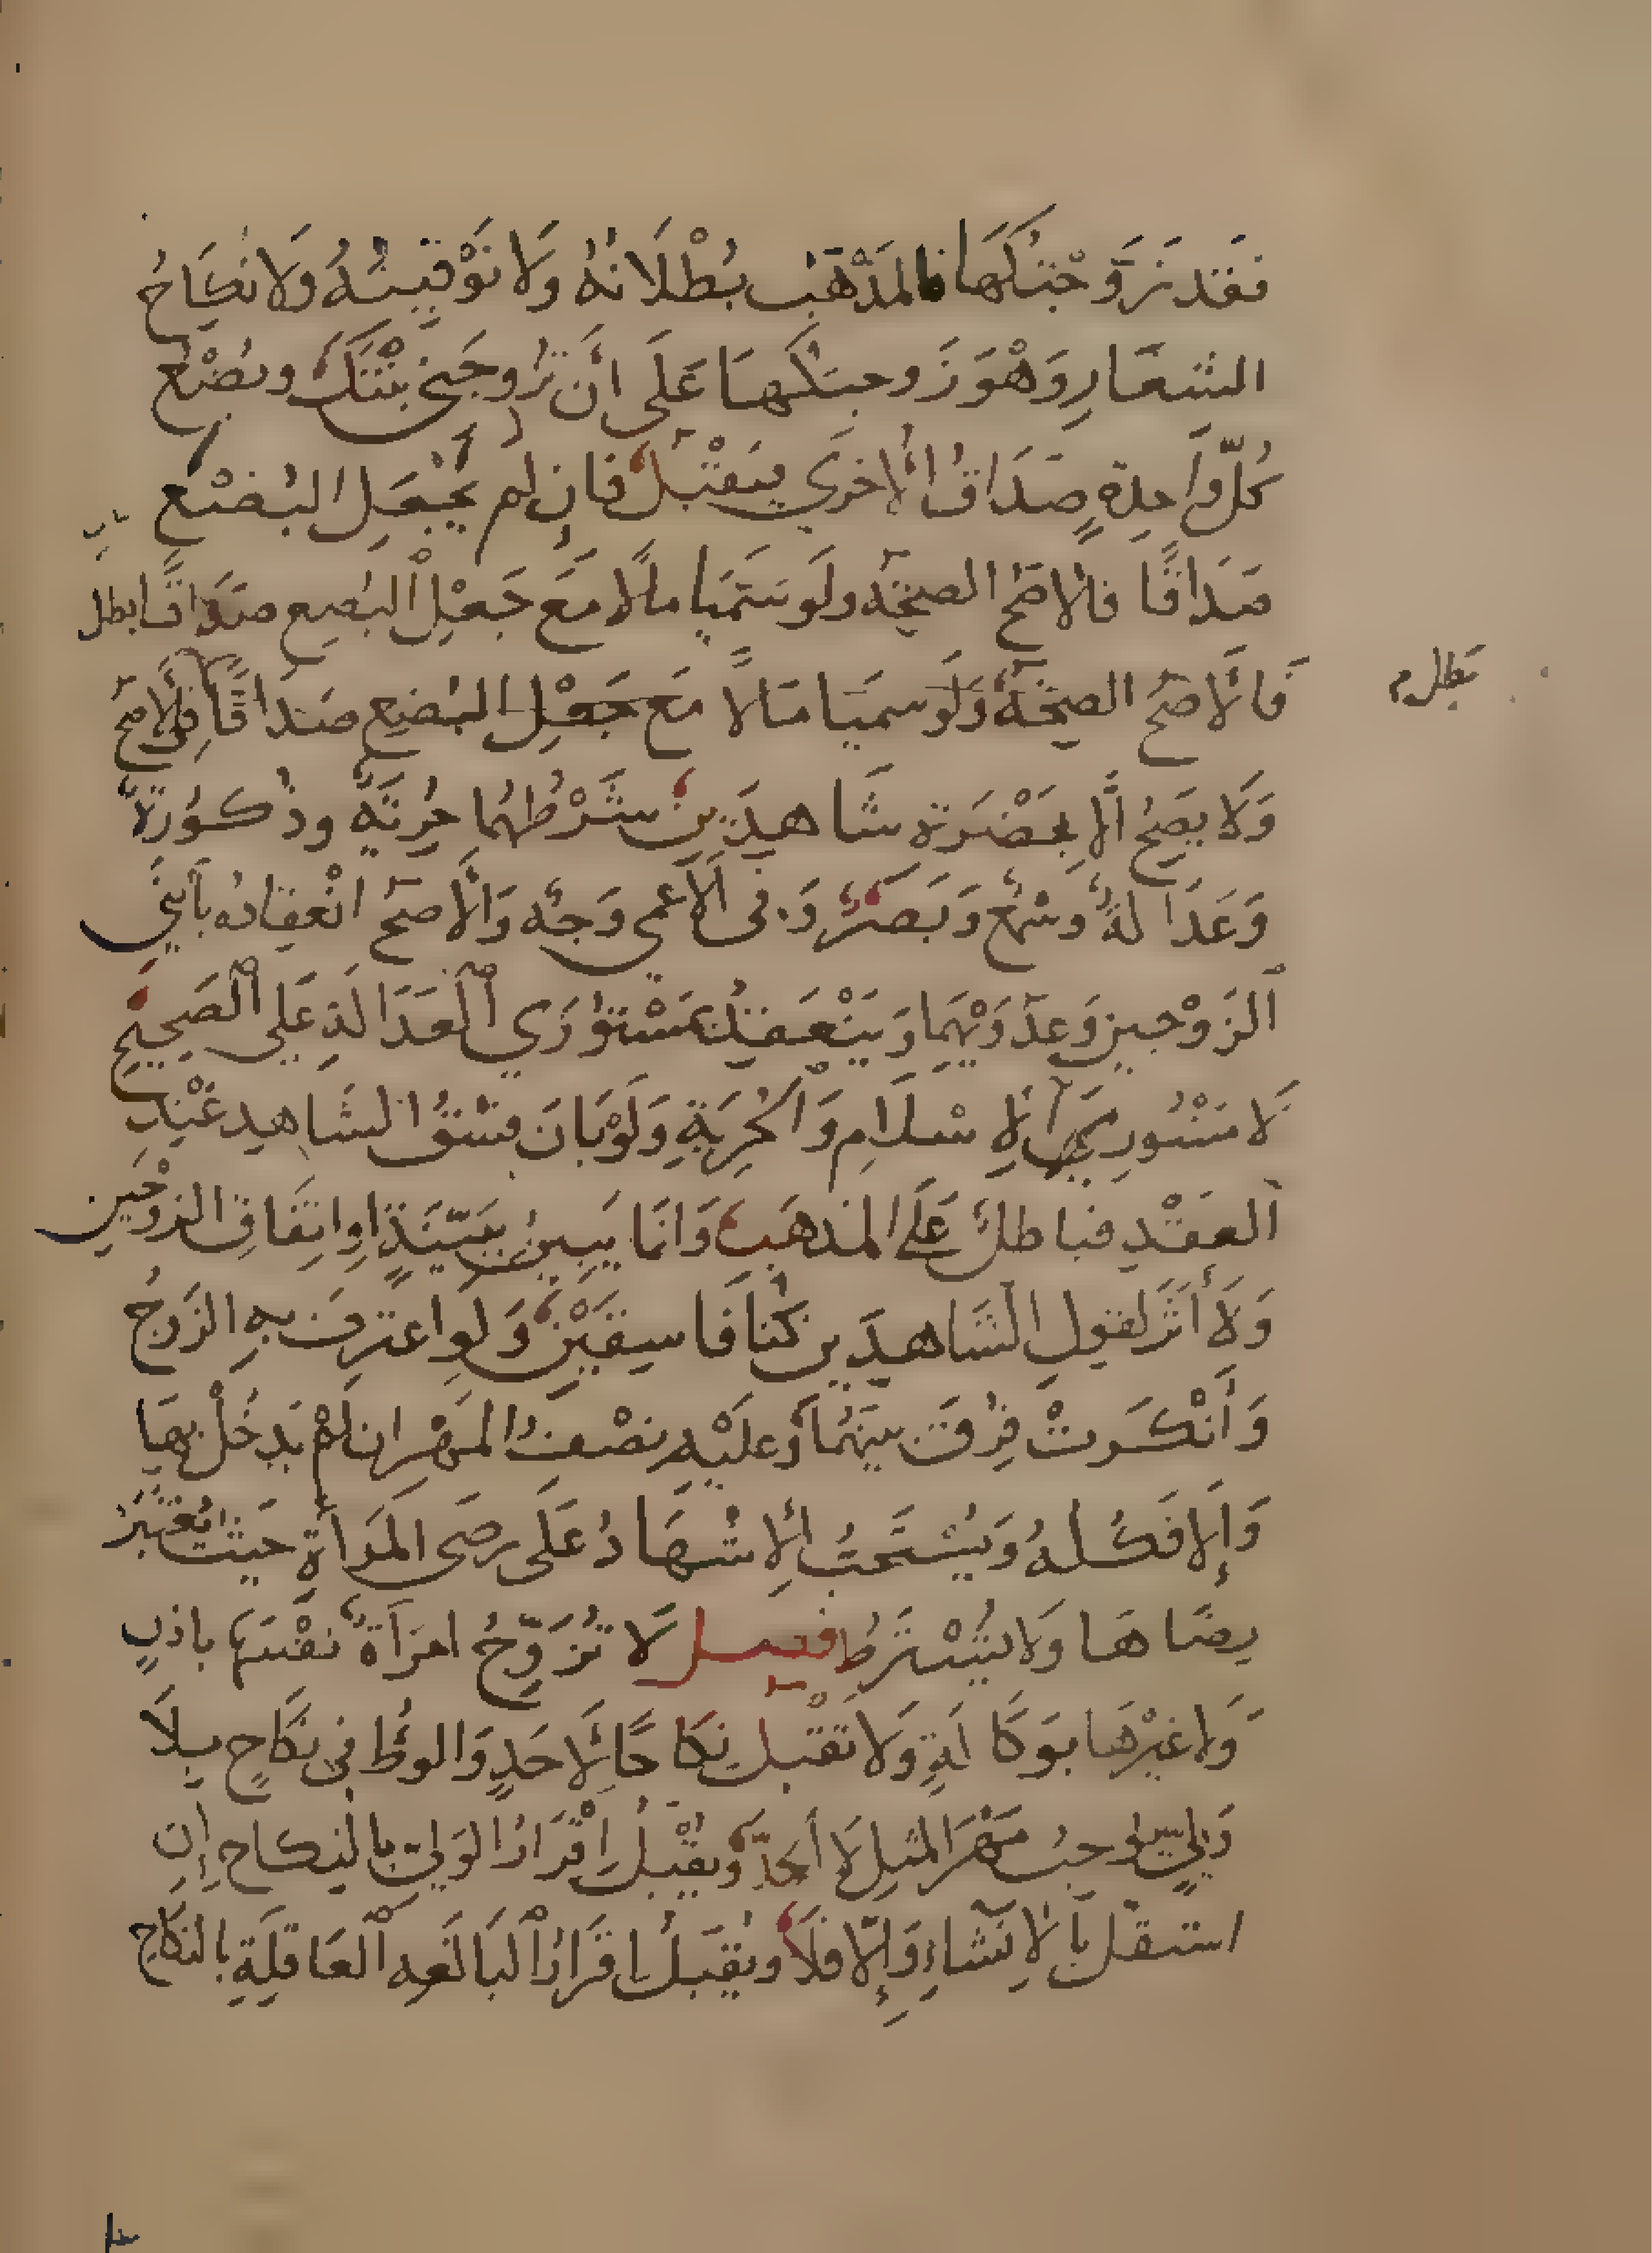 فقد زوجتكها فالمذهب بطلانه ولا توقيته ولا نكاح
الشغار وهو زوجتكها على أن تزوجني بنتك وبضع
كل واحدة صداق الأخرى فيقبل فإن لم يجعل البضع
صداقا فالأصح الصحة ولو سميا مالا مع جعل البضع صداقا بطل
فالأصح الصحة ولو سميا مالا مع جعل البضع صداقا في الأصح
يبطل م
ولا يصح إلا بحضرة شاهدين شرطهما حرية وذكورة
وعدالة وسمع وبصر وفي الأعمى وجه والأصح انعقاده بابني
الزوجين وعدويهما وينعقد بمستوري العدالة على الصحيح
لا مستوري الإسلام والحرية ولو بان فسق الشاهد عند
العقد فباطل على المذهب وإنما يبين ببينة أو اتفاق الزوجين
ولا أثر لقول الشاهدين كنا فاسقين ولو اعترف به الزوج
وأنكرت فرق بينهما وعليه نصف المهر إن لم يدخل بها
وإلا فكله ويستحب الإشهاد على رضى المرأة حيث يعتبر
رضاها ولا يشترط فصل لا تزوج امرأة نفسها بإذن
ولا غيرها بوكالة ولا تقبل نكاحا لأحد والوطئ في نكاح بلا
ولي يوجب مهر المثل لا الحد ويقبل إقرار الولي بالنكاح إن
استقل بالإنشاء وإلا فلا ويقبل إقرار البالغه العاقلة بالنكاح